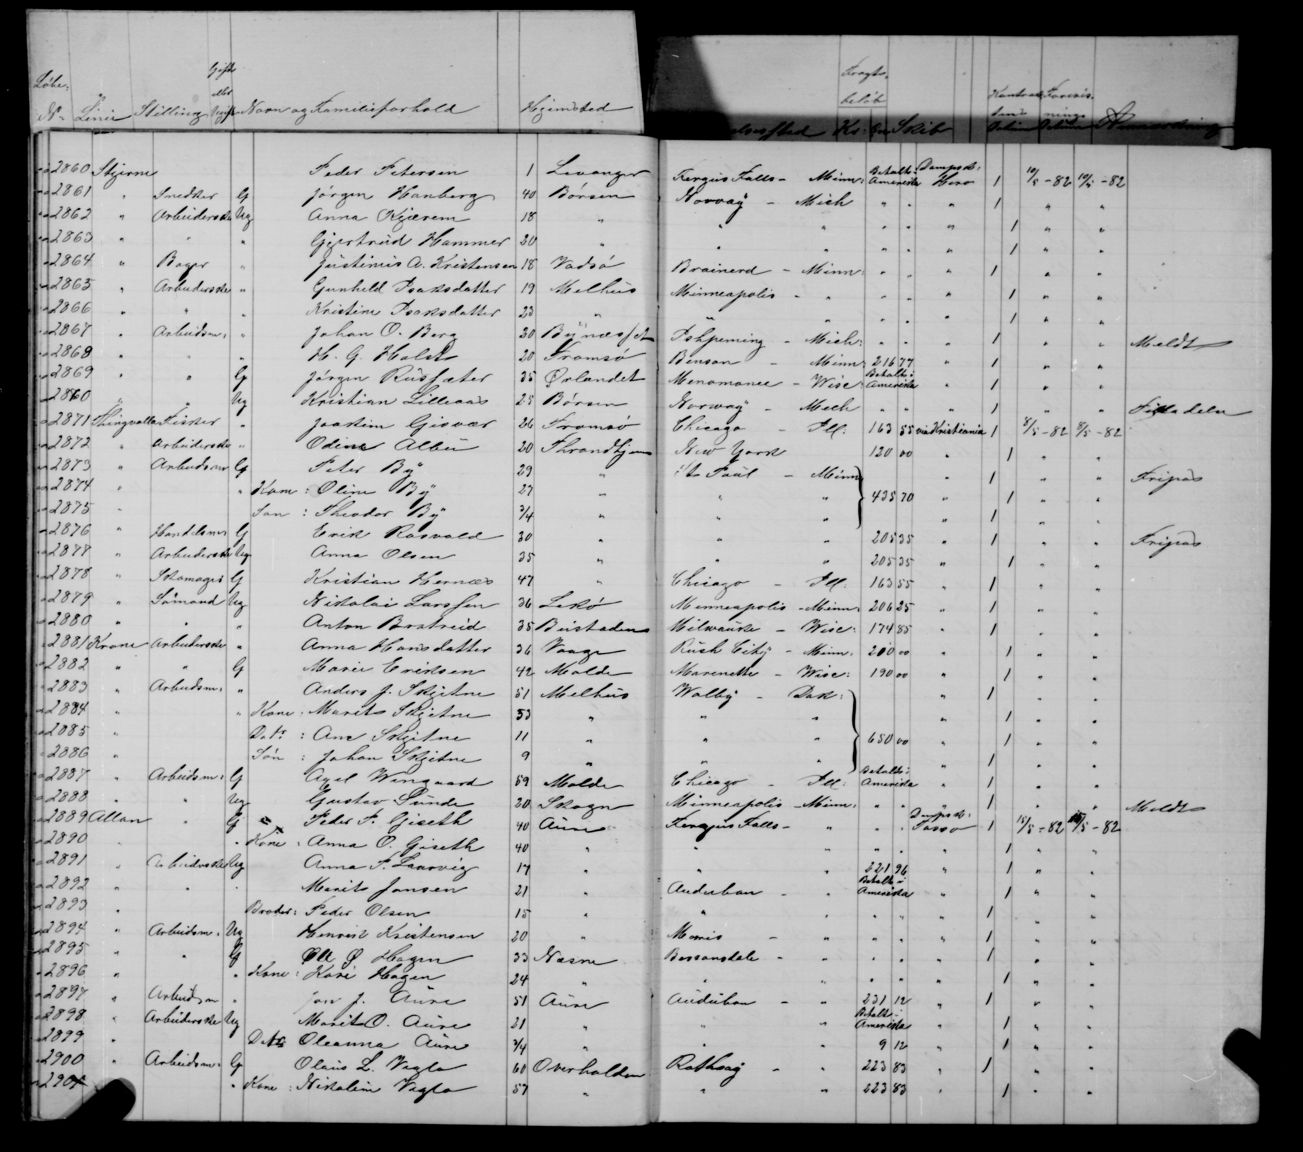 Løbe. Gift Fragt-
eller beløb Kontrakt Forevis.
No Linie Stilling Ugift Navn og Familieforhold Hjemsted Kr: Skib nings Anmærkning
2860 Stjerne Peder Petersen 1 Levanger Fergus Falls - Minn: Betalt i Amerika Dampsk: Hero 1 10/5 - 82 10/5 - 82
2861 " Snedker G Jörgen Hanberg 40 Börsen Norway - Mich " " " 1 " "
2862 " Arbeiderske Ug Anna Kjærem 18 " " " " " " 1 " "
2863 " " " Gjertrud Hammer 20 " " " " " " 1 " "
2864 " Bager " Justinius A. Kristensen 18 Vadsö Brainerd - Minn: " " " 1 " "
2865 " Arbeiderske " Gunhild Isaksdatter 19 Melhus Minneapolis - " " " " 1 " "
2866 " " " Kristine Isaksdatter 23 " " " " " " 1 " "
2867 " Arbeidsm: " Johan O. Berg 20 Bynæsset Ishpeming - Mich: " " " 1 " " Meldt
2868 " " " H. G. Holst 20 Tromsö Benson - Minn: 216 77 " 1 " "
2869 " " G Jörgen Rusfæter 35 Örlandet Menomonee - Wisc: Betalt i Amerika " 1 " "
2860 " " Ug Kristian Lilleaas 25 Börsen Norway - Mich " " " 1 " "
2871 Thingvalla Fisker " Joakim Gisvær 26 Tromsö Chicago - Ill. 163 55 via Kristiania 1 8/5 - 82 8/5 - 82
2872 " Arbeiderske " Odine Albu 20 Throndhjem New York 120 00 " 1 " "
2873 " Arbeidsm G Peter By 29 " St Paul - Minn " 1 " " Fripas
2874 " " Kone : Oline By 27 " " " 435 70 " 1 " "
2875 " Søn : Theodor By 3/4 " " " " 1 " "
2876 " Handelsm G Erik Rosvald 30 " " " 205 35 " 1 " " Fripas
2877 " Arbeiderske Ug Anna Olsen 35 " " " 205 35 " 1 " "
2878 " Skomager G Kristian Hernæs 47 " Chicago - Ill. 163 55 " 1 " "
2879 " Sömand Ug Nikolai Larssen 36 Lekö Minneapolis - Minn: 206 25 " 1 " "
2880 " " " Anton 35 Beistaden Milwaukee - Wisc: 174 85 " 1 " "
2881 Krone Arbeiderske " Anna Hansdatter 36 Vaage Rush City - Minn: 200 00 " 1 " "
2882 " " G Marie Eriksen 42 Molde Marenette - Wisc: 190 00 " 1 " "
2883 " Arbeidsm: " Anders J. Skjetne 51 Melhus Walby - Dak: " 1 " "
2884 " " Kone : Marit Skjetne 53 " " " " 1 " "
2885 " Dat: : Ane Skjetne 11 " " " 650 00 " 1 " "
2886 " Søn : Johan Skjetne 9 " " " " 1 " "
2887 " Arbeidsm: G Axel Wingaard 59 Molde Chicago - Ill: Betalt i Amerika " 1 " "
2888 " " Ug Gustav Sunde 20 Skogn Minneapolis - Minn: " " " 1 " " Meldt
2889 Allan " G Peder P. Gjseth 40 Aure Fergus Falls - " " " Dampsk: Tasso 1 15/5 - 82 /5 - 82
2890 " " Kone : Anna O. Gjseth 40 " " " " " " 1 " "
2891 " Arbeiderske Ug Anna P. Laurvig 17 " " " 221 96 " 1 " "
2892 " " " Marit Jonsen 21 " Auduban - " Betalt i Amerika " 1 " "
2893 " Broder: Peder Olsen 15 " " " " " " 1 " "
2894 " Arbeidsm. Ug Henrik Kristensen 20 " Morris - " " " " 1 " "
2895 " " G Ole Ø Hagen 33 Næsne " " " " 1 " "
2896 " " Kone : Kari Hagen 24 " " " " " " 1 " "
2897 " Arbeidsm " Jon J. Aure 51 Aure Auduban - " 231 12 " 1 " "
2898 " Arbeiderske Ug Marit O. Aure 21 " " " Betalt i Amerika " 1 " "
2899 " Dat Oleanna Aure 3/4 " " " 9 12 " 1 " "
2900 " Arbeidsm: G Olaus L. Vegla 60 Overhalden Rothsay - " 223 83 " 1 " "
2901 " Kone : Nikoline Vegla 57 " " " 223 83 " 1 " "